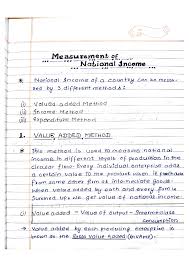 Measurement of
National Income
National Income of a country can be measu-
red by 3 different methods:
(i) Value added Method
(ii) Income Method
(iii) Expenditure Method
1. VALUE ADDED METHOD
This method is used to measure national
income in different levels of production in the
circular flow. Every individual enterprise adds
a certain value to the product when it purchases
from some other firms as intermediate goods
when value added by each and every firm is
summed up, we get value of national income.
(i) Value added = Value of output - Intermediate
consumption
Value added by each producing enterprise is
known as the Gross Value added